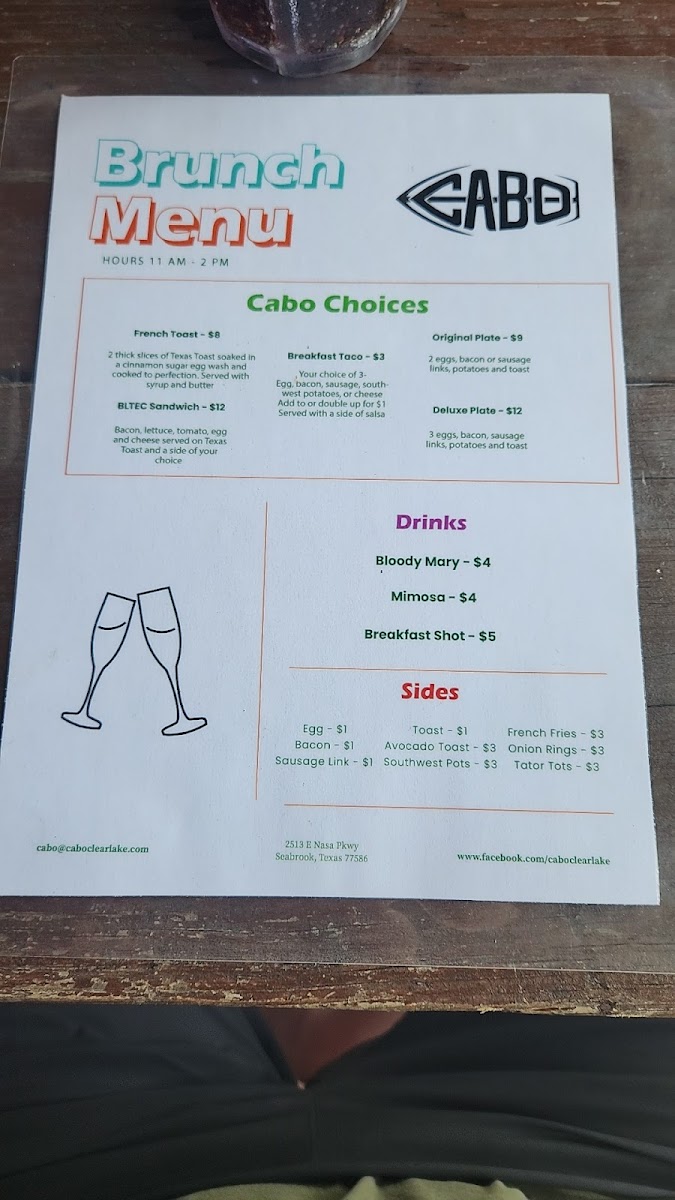 Brunch
Menu
HOURS 11 AM - 2 PM
CABO
Cabo Choices
French Toast - $8
2 thick slices of Texas Toast soaked in
a cinnamon sugar egg wash and
cooked to perfection. Served with
syrup and butter
BLTEC Sandwich - $12
Bacon, lettuce, tomato, egg
and cheese served on Texas
Toast and a side of your
choice
Breakfast Taco - $3
Your choice of 3-
Egg, bacon, sausage, south-
west potatoes, or cheese
Add to or double up for $1
Served with a side of salsa
Original Plate - $9
2 eggs, bacon or sausage
links, potatoes and toast
Deluxe Plate - $12
3 eggs, bacon, sausage
links, potatoes and toast
Drinks
Bloody Mary - $4
Mimosa - $4
Breakfast Shot - $5
Sides
Egg - $1
Bacon - $1
Sausage Link - $1
Toast - $1
Avocado Toast - $3
Southwest Pots - $3
French Fries - $3
Onion Rings - $3
Tator Tots - $3
cabo@caboclearlake.com
2513 E Nasa Pkwy
Seabrook, Texas 77586
www.facebook.com/caboclearlake